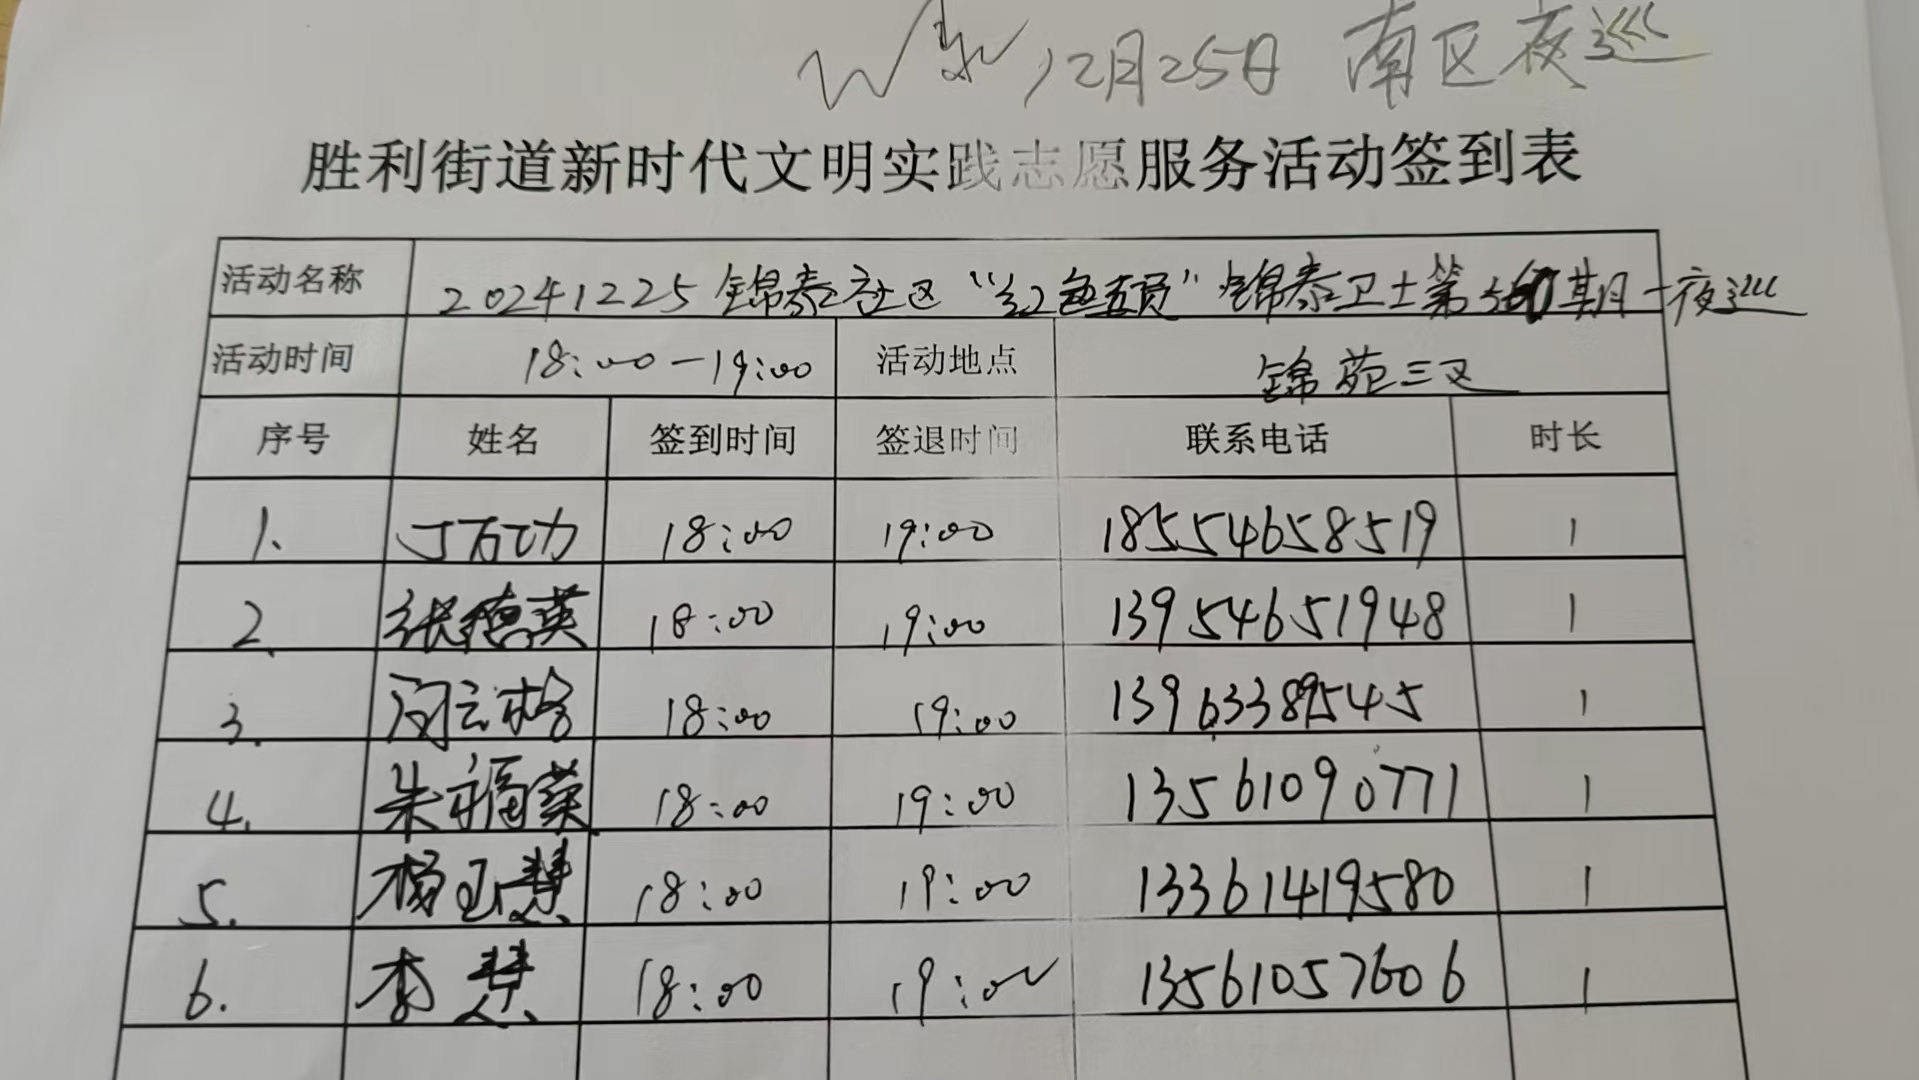 12月25日 南区夜巡
胜利街道新时代文明实践志愿服务活动签到表
活动名称 20241225锦泰社区“红色 ”锦泰卫士第 期-夜巡
活动时间 18:00-19:00 活动地点 锦苑三区
序号 姓名 签到时间 签退时间 联系电话 时长
1. 丁万功 18:00 19:00 18554658519 1
2. 张德英 18:00 19:00 13954651948 1
3. 18:00 19:00 13963389545 1
4. 朱福荣 18:00 19:00 13561090771 1
5. 杨玉慧 18:00 19:00 13361419580 1
6. 李慧 18:00 19:00 13561057606 1